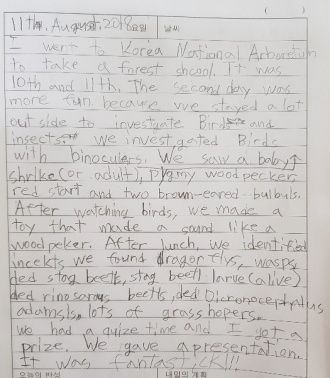 11th, August, 2018 요일 날씨 ( )
I went to Korea National Arboretum
to take a forest shcool. It was
10th and 11th. The second day was
more fun because we stayed a lot
outside to investgate Birds and
insects. We invest gated Birds
with binoculers. We saw a baby
shrike(or adult), pygmy woodpecker,
red start and two brown-eared bulbuls.
After watching birds, we made a
toy that made a sound like a
woodpeker. After lunch, we identified
incekts we found dragonflys, wasps,
ded stag beetls, stag beetl larve(alive)
ded rinosorous beetls, ded Dicronocephalus
adamsls, lots of grashopers.
we had a quize time and I got a
prize. We gave a presentation.
It was fantastick!!!
오늘의 반성 내일의 계획